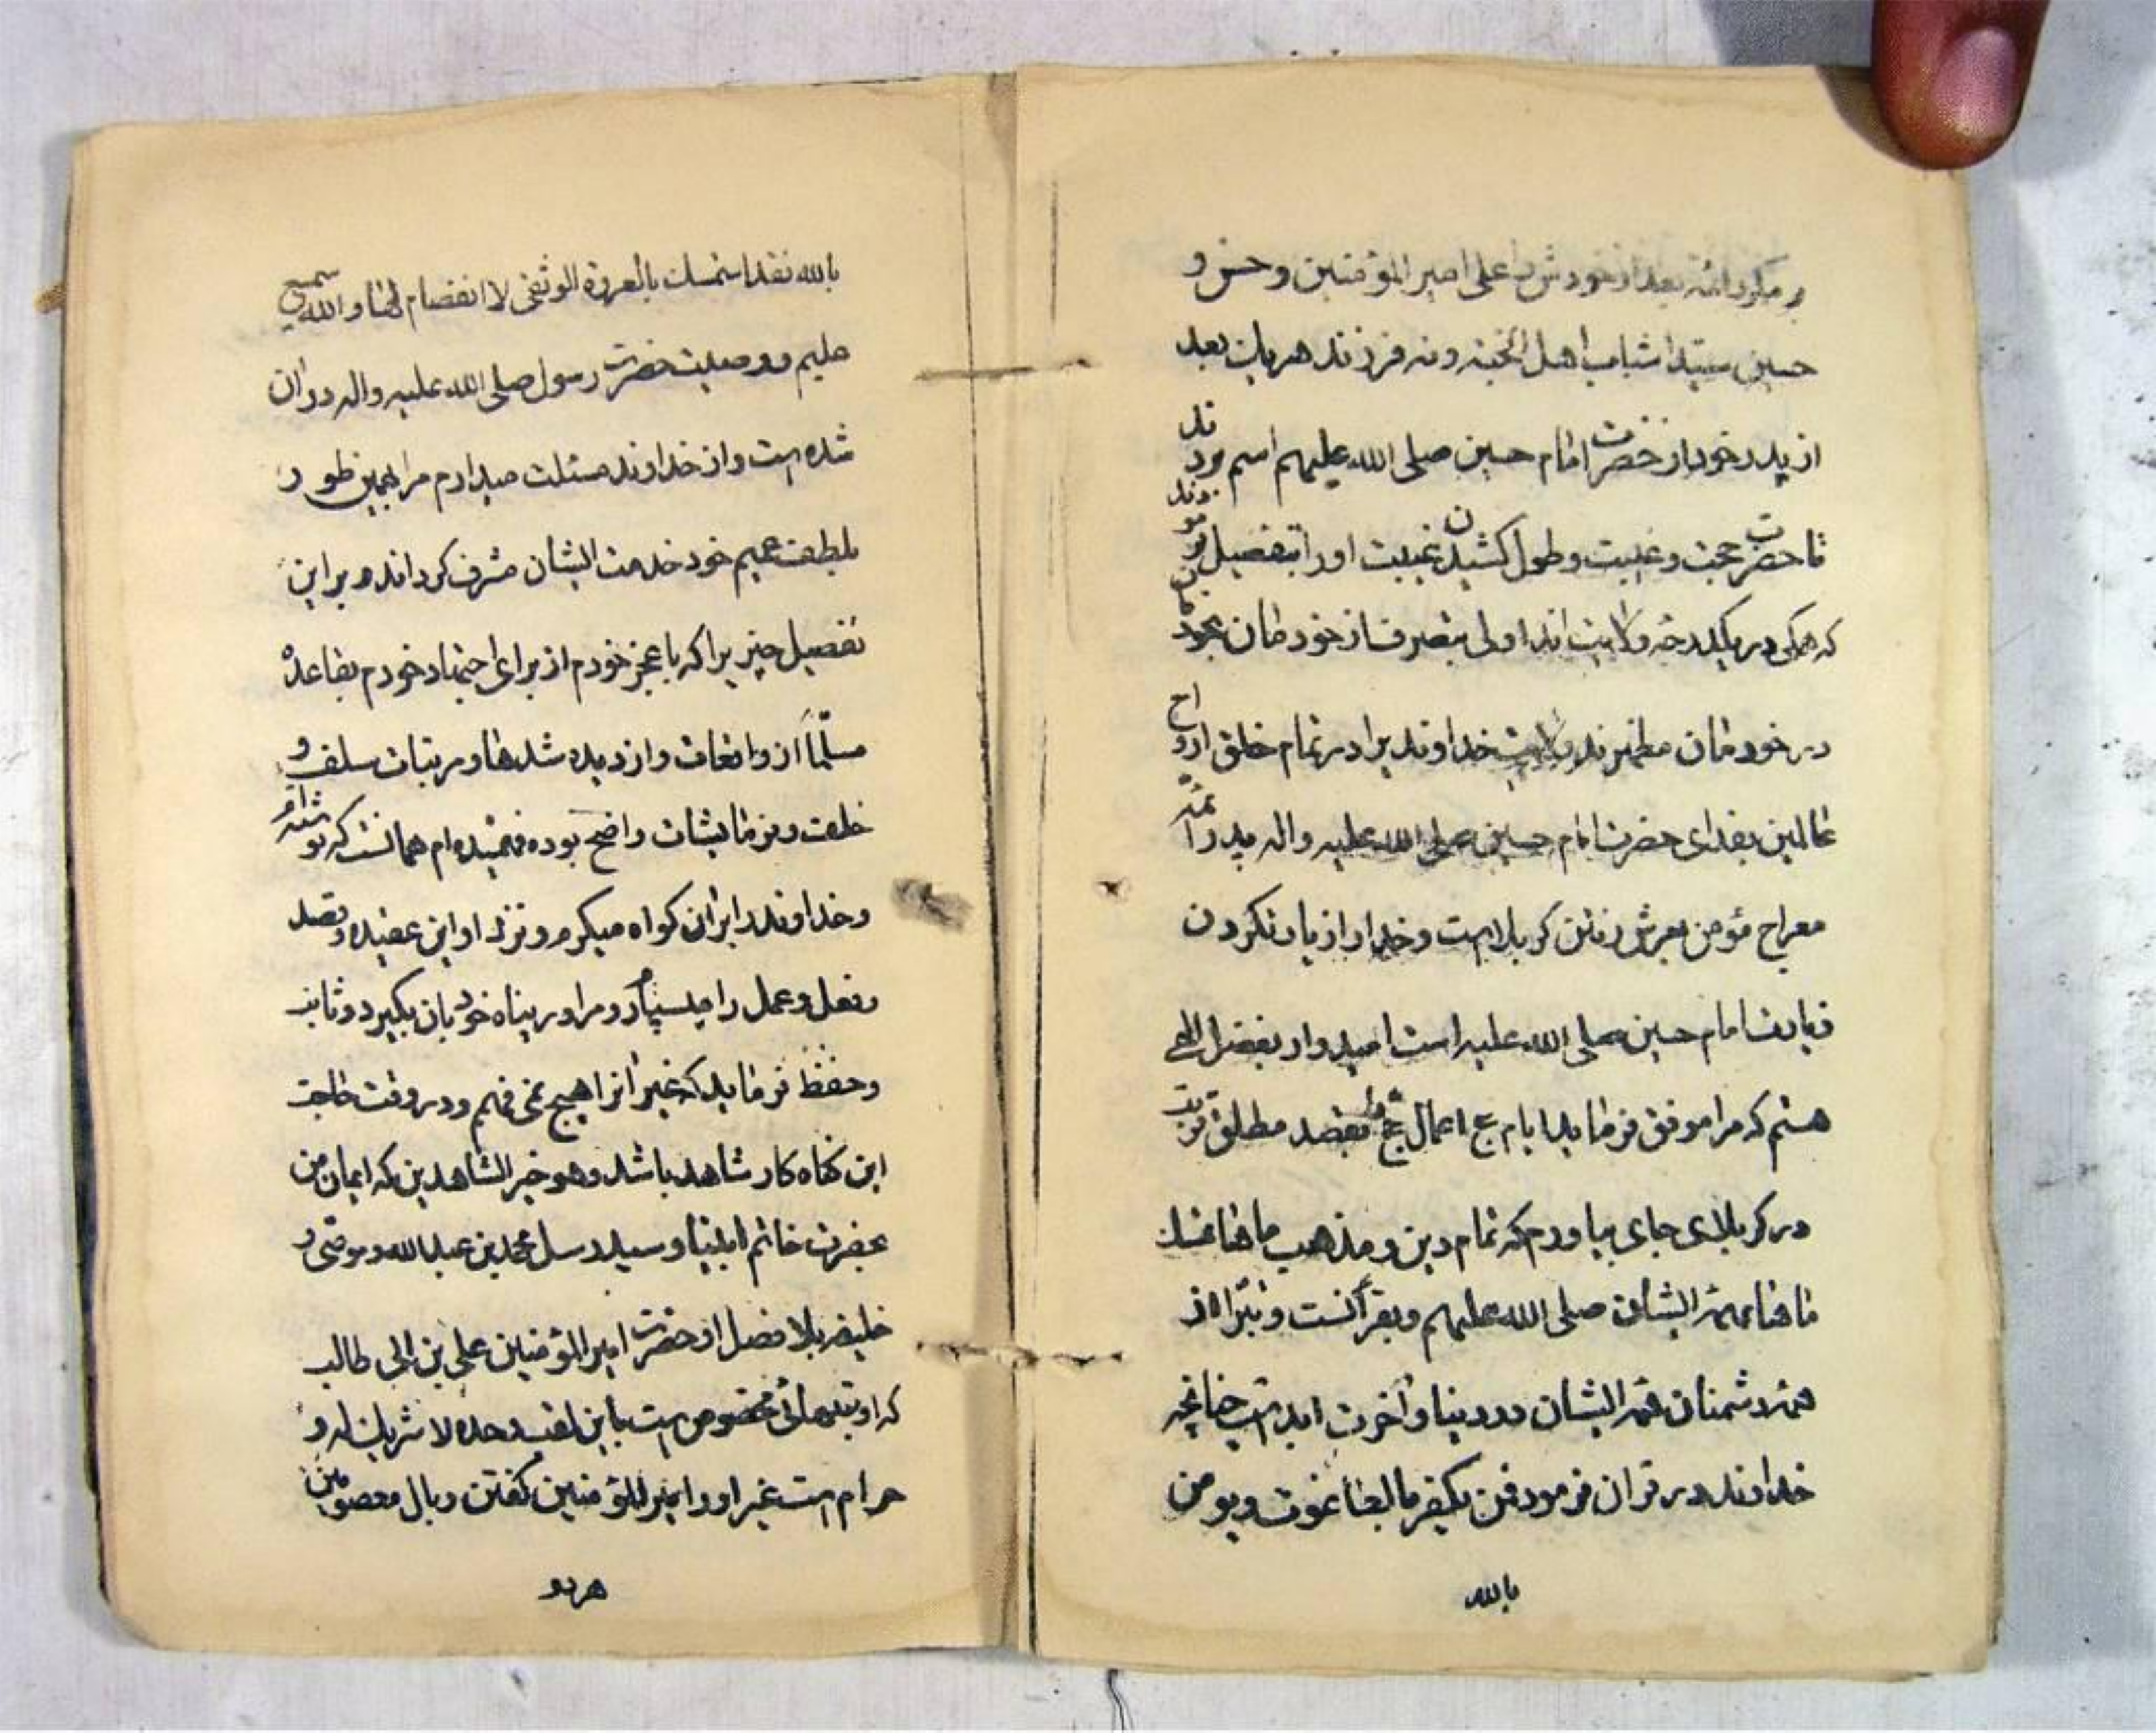 بعد از خودش را علی امیر المؤمنین و حسن و
حسین سیدا شباب اهل الجنه و نه فرزند هر یک بعد
از پدر خود از حضرت امام حسین صلی الله علیهم اسم بردند
تا حضرت حجت و غیبت و طول کشیدن غیبت او را بتفصیل فرمودند
که همگی در یکدرجه ولایت اند اولی بتصرف از خودمان بخودمان
در خودمان مظهرند ولایت خداوند را در تمام خلق ارواح
عالمین بفدای حضرت امام حسین صلی الله علیه و اله
معراج مؤمن بعرش رفتن کربلا است و خدا
زیارت امام حسین صلی الله علیه است امیدوار بفضل الهی
هستم که مرا موفق فرماید ایام حج اعمال حج بقصد مطلق قربت
در کربلای جای بیاورم که تمام دین و مذهب ماها تمسک
ماها بهمهٔ ایشان صلی الله علیهم و بقرآنست و تبرّا از
همهٔ دشمنان همهٔ ایشان در دنیا و آخرت است چنانچه
خداوند در قران فرمود فمن یکفر بالطاغوت و یومن
بالله
بالله فقد استمسک بالعروة الوثقی لا انفصام لها و الله سمیع
علیم و وصیت حضرت رسول صلی الله علیه و اله در ان
شده است و از خداوند مسئلت میدارم مرا بهمین طور
بلطف عمیم خود خدمت ایشان مشرف گرداند و بر این
تفصیل چیزیرا که با عجز خودم از برای اجتهاد خودم بقاعدهٔ
مسلّما از واقعات و از دیده شدها و مرتبات سلف و
خلف و فرمایشات واضح بوده فهمیده ام همانست که نوشته ام
و خداوند را بر آن گواه میگیرم و نزد او این عقیده و قصد
و فعل و عمل را میسپارم و مرا در پناه خود بان بگیرد و ثابت
و حفظ فرماید که غیر آنرا هیچ نمی فهمم و در وقت حاجت
این گناه کار شاهد باشد و هو خیر الشاهدین که ایمان من
بحضرت خاتم انبیا و سید رسل محمد بن عبدالله و بوصی و
خلیفه بلا فصل او حضرت امیر المؤمنین علی بن ابی طالب
که او بتنهائی مخصوص است باین لقب وحده لا شریک له و
حرام است غیر او را امیر المؤمنین گفتن و بال معصومین
هر دو